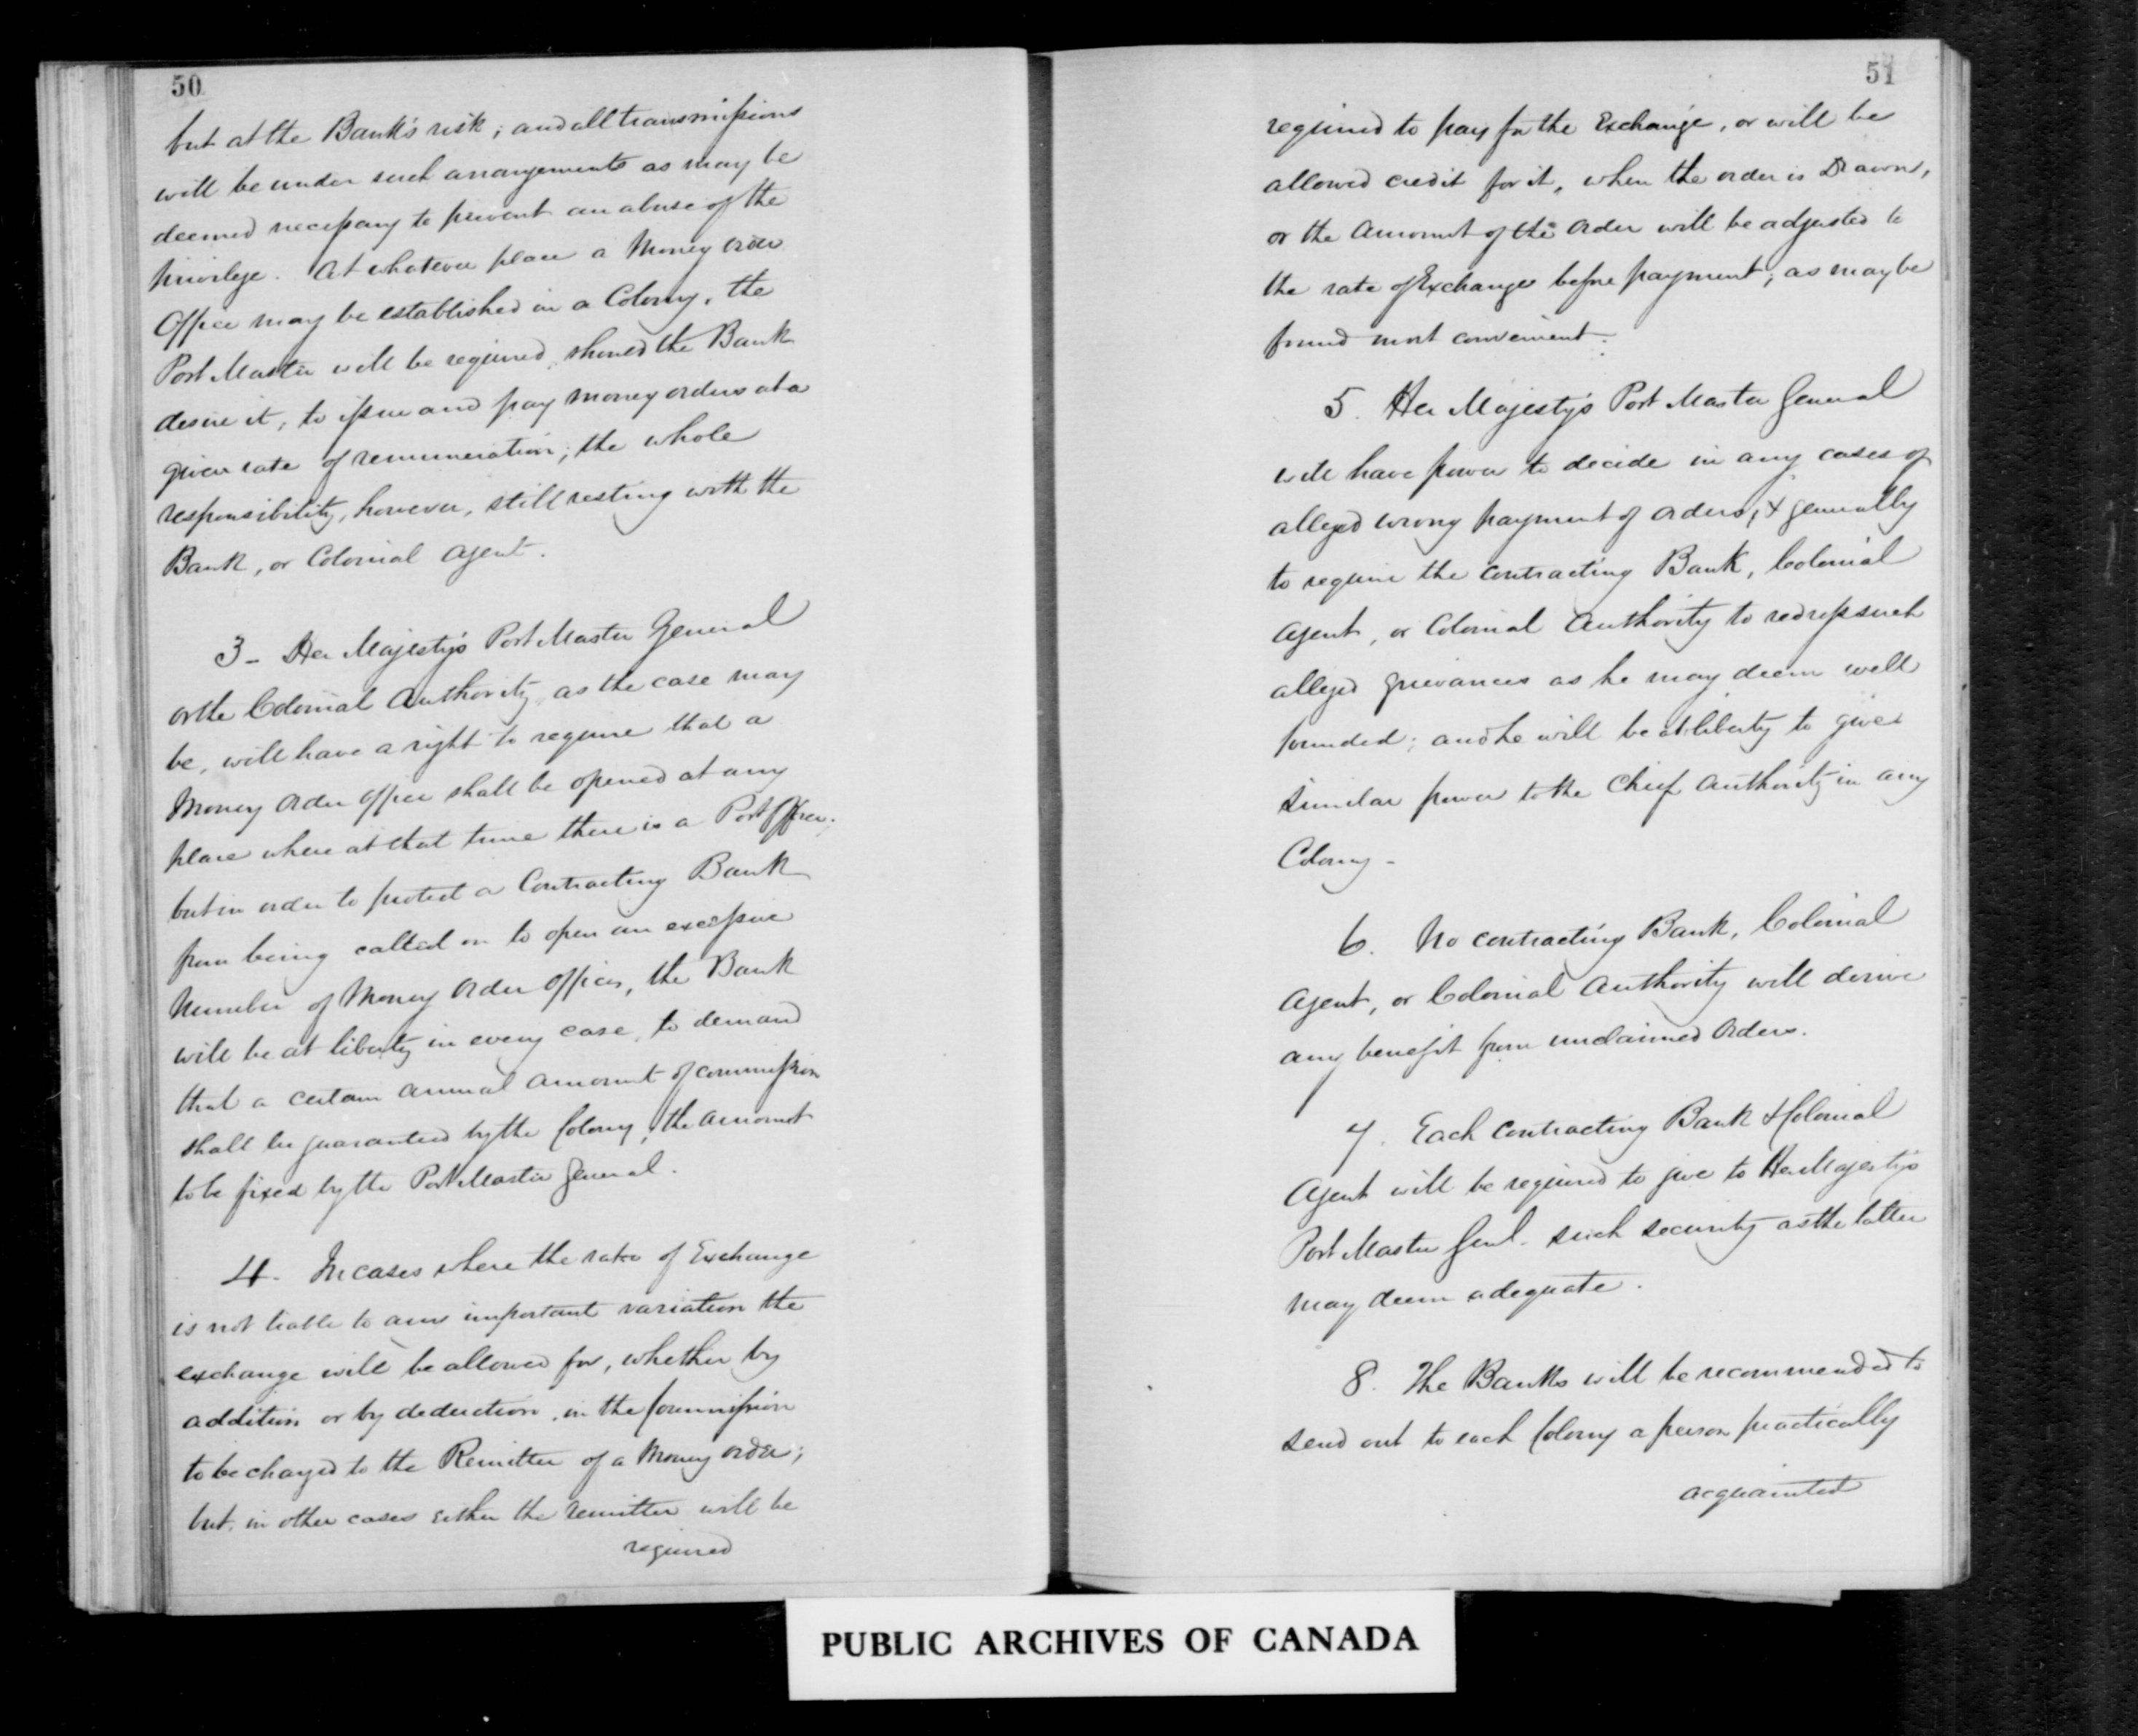 50
but at the Bank's risk; and all transmissions
will be under such arrangements as may be
deemed necessary to prevent an abuse of the
privilege. At whatever place a Money Order
Office may be established in a Colony, the
Post Master will be required, should the Bank
desire it, to issue and pay money orders at a
given rate of remuneration; the whole
responsibility, however, still resting with the
Bank, or Colonial Agent.
3 - Her Majesty's Post Master General
or the Colonial Authority, as the case may
be, will have a right to require that a
Money Order Office shall be opened at any
place where at that time there is a Post Office.
but in order to protect a Contracting Bank
from being called on to open an excessive
Number of Money Order Offices, the Bank
will be at liberty in every case, to demand
that a certain annual amount of commission
shall be guaranteed by the Colony, the amount
to be fixed by the Post Master General.
4. In cases where the rate of Exchange
is not liable to any important variation the
exchange will be allowed for, whether by
addition or by deduction, in the Commission
to be charged to the Remitter of a Money Order;
but, in other cases either the remitter will be
required
51
required to pay for the Exchange, or will be
allowed credit for it, when the order is Drawn,
or the Amount of the Order will be adjusted to
the rate of Exchange before payment; as may be
found most convenient.
5. Her Majesty's Post Master General
will have power to decide in any cases of
alleged wrong payment of orders, & generally
to require the contracting Bank, Colonial
Agent, or Colonial Authority to redress such
alleged grievances as he may deem well
founded; and he will be at liberty to give
similar power to the Chief Authority in any
Colony -
6. No contracting Bank, Colonial
Agent, or Colonial Authority will derive
any benefit from unclaimed Orders.
7. Each contracting Bank & Colonial
Agent will be required to give to Her Majesty's
Post Master Genl. such security as the latter
may deem adequate.
8. The Banks will be recommended to
send out to each Colony a person practically
acquainted
PUBLIC ARCHIVES OF CANADA